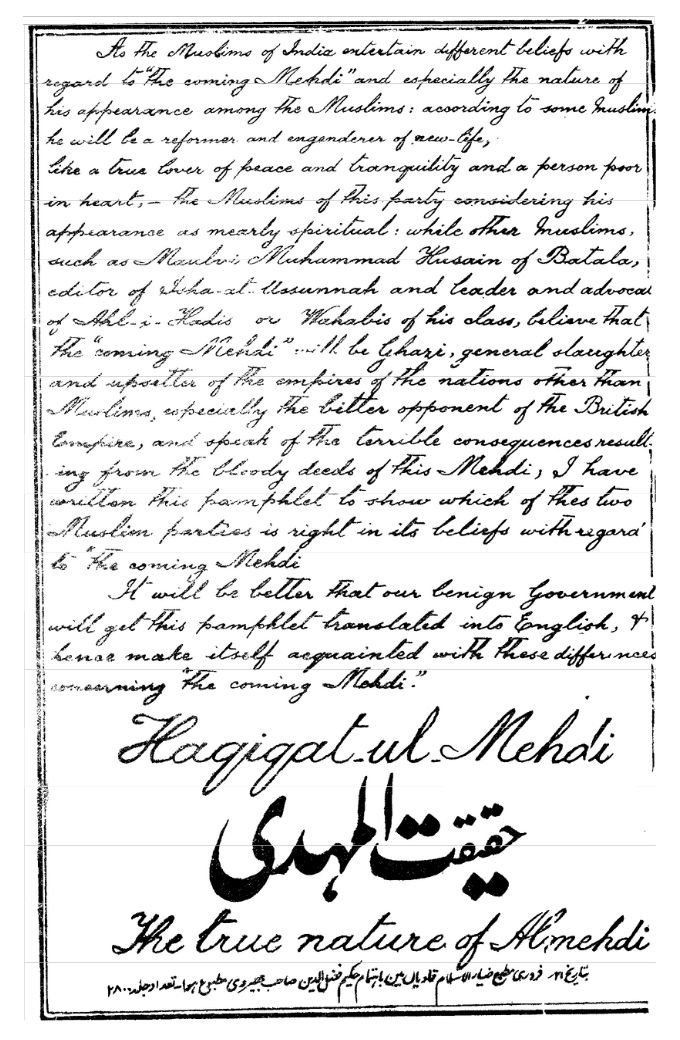 As the Muslims of India entertain different beliefs with
regard to "the coming Mehdi" and especially the nature of
his appearance among the Muslims: according to some Muslim
he will be a reformer and engenderer of new-life,
like a true lover of peace and tranquility and a person poor
in heart, — the Muslims of this party considering his
appearance as mearly spiritual: while other Muslims,
such as Maulvi Muhammad Husain of Batala,
editor of Isha-at-Ussunnah and leader and advocat
of Ahl-i-Hadis or Wahabis of his class, believe that
the "coming Mehdi" will be Ghazi, general slaughter
and upsetter of the empires of the nations other than
Muslims, especially the bitter opponent of the British
Empire, and speak of the terrible consequences result-
ing from the bloody deeds of this Mehdi; I have
written this pamphlet to show which of thes two
Muslim parties is right in its beliefs with regard
to "the coming Mehdi
It will be better that our benign Government
will get this pamphlet translated into English, &
hence make itself acquainted with these differences
concerning "the coming Mehdi."
Haqiqat-ul-Mehdi
حقیقت المہدی
The true nature of Almehdi
بتاریخ ۲۱ فروری مطبع ضیاء الاسلام قادیان میں باہتمام حکیم فضل الدین صاحب بھیروی مطبوع ہوا۔ تعداد جلد